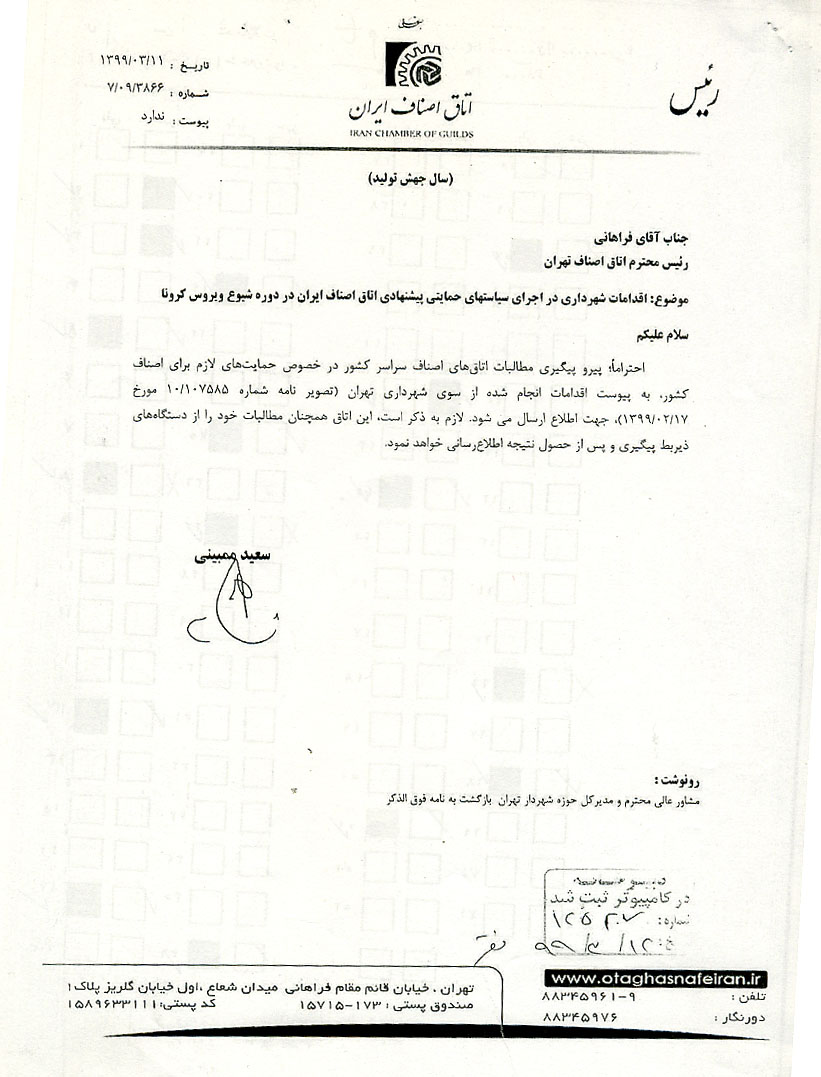 رئیس
اتاق اصناف ایران
IRAN CHAMBER OF GUILDS
تاریخ : ۱۳۹۹/۰۳/۱۱
شماره : ۷/۰۹/۳۸۶۶
پیوست : ندارد
(سال جهش تولید)
جناب آقای فراهانی
رئیس محترم اتاق اصناف تهران
موضوع: اقدامات شهرداری در اجرای سیاستهای حمایتی پیشنهادی اتاق اصناف ایران در دوره شیوع ویروس کرونا
سلام علیکم
احتراماً؛ پیرو پیگیری مطالبات اتاق‌های اصناف سراسر کشور در خصوص حمایت‌های لازم برای اصناف
کشور، به پیوست اقدامات انجام شده از سوی شهرداری تهران (تصویر نامه شماره ۱۰/۱۰۷۵۸۵ مورخ
۱۳۹۹/۰۲/۱۷)، جهت اطلاع ارسال می شود. لازم به ذکر است، این اتاق همچنان مطالبات خود را از دستگاه‌های
ذیربط پیگیری و پس از حصول نتیجه اطلاع‌رسانی خواهد نمود.
سعید ممبینی
رونوشت :
مشاور عالی محترم و مدیرکل حوزه شهردار تهران بازگشت به نامه فوق الذکر
در کامپیوتر ثبت شد
شماره:
۹۹/۳/۱۲
www.otaghasnafeiran.ir
تلفن : ۸۸۳۴۵۹۶۱-۹
دورنگار : ۸۸۳۴۵۹۷۶
تهران ، خیابان قائم مقام فراهانی میدان شعاع ،اول خیابان گلریز پلاک۱
صندوق پستی : ۱۷۳-۱۵۷۱۵ کد پستی:۱۵۸۹۶۳۳۱۱۱